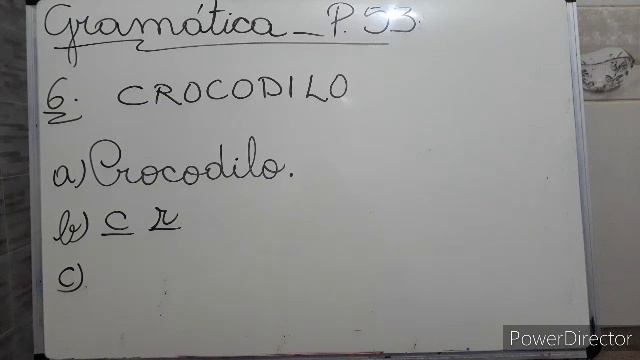 Gramática - P. 53.
6. CROCODILO
a) Crocodilo.
b) c r
c)
PowerDirector